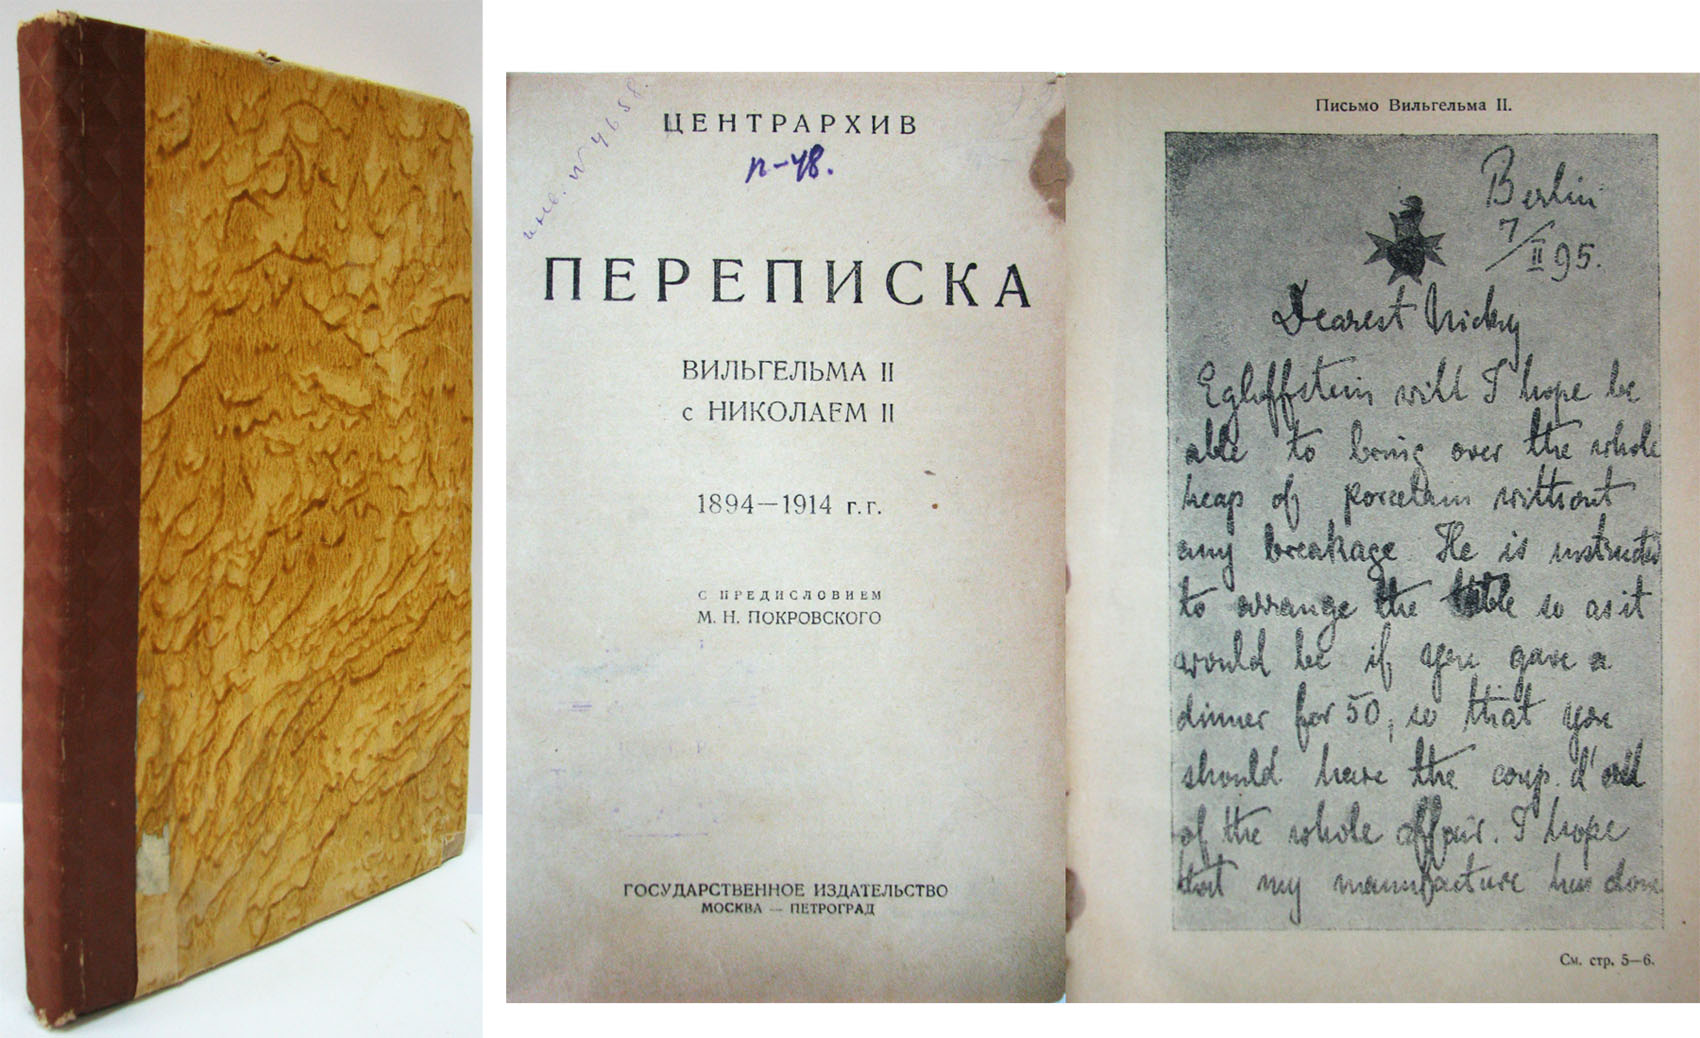 инв. № 4658.
ЦЕНТРАРХИВ
п-48.
ПЕРЕПИСКА
ВИЛЬГЕЛЬМА II
с НИКОЛАЕМ II
1894—1914 г.г.
С ПРЕДИСЛОВИЕМ
М. Н. ПОКРОВСКОГО
ГОСУДАРСТВЕННОЕ ИЗДАТЕЛЬСТВО
МОСКВА — ПЕТРОГРАД
Письмо Вильгельма II.
Berlin
7/II 95.
Dearest Nicky
Egloffstein will I hope be
able to bring over the whole
heap of porcelain without
any breakage. He is instructed
to arrange the table so as it
would be if you gave a
dinner for 50; so that you
should have the coup d'œil
of the whole affair. I hope
that my manufacture has done
См. стр. 5—6.